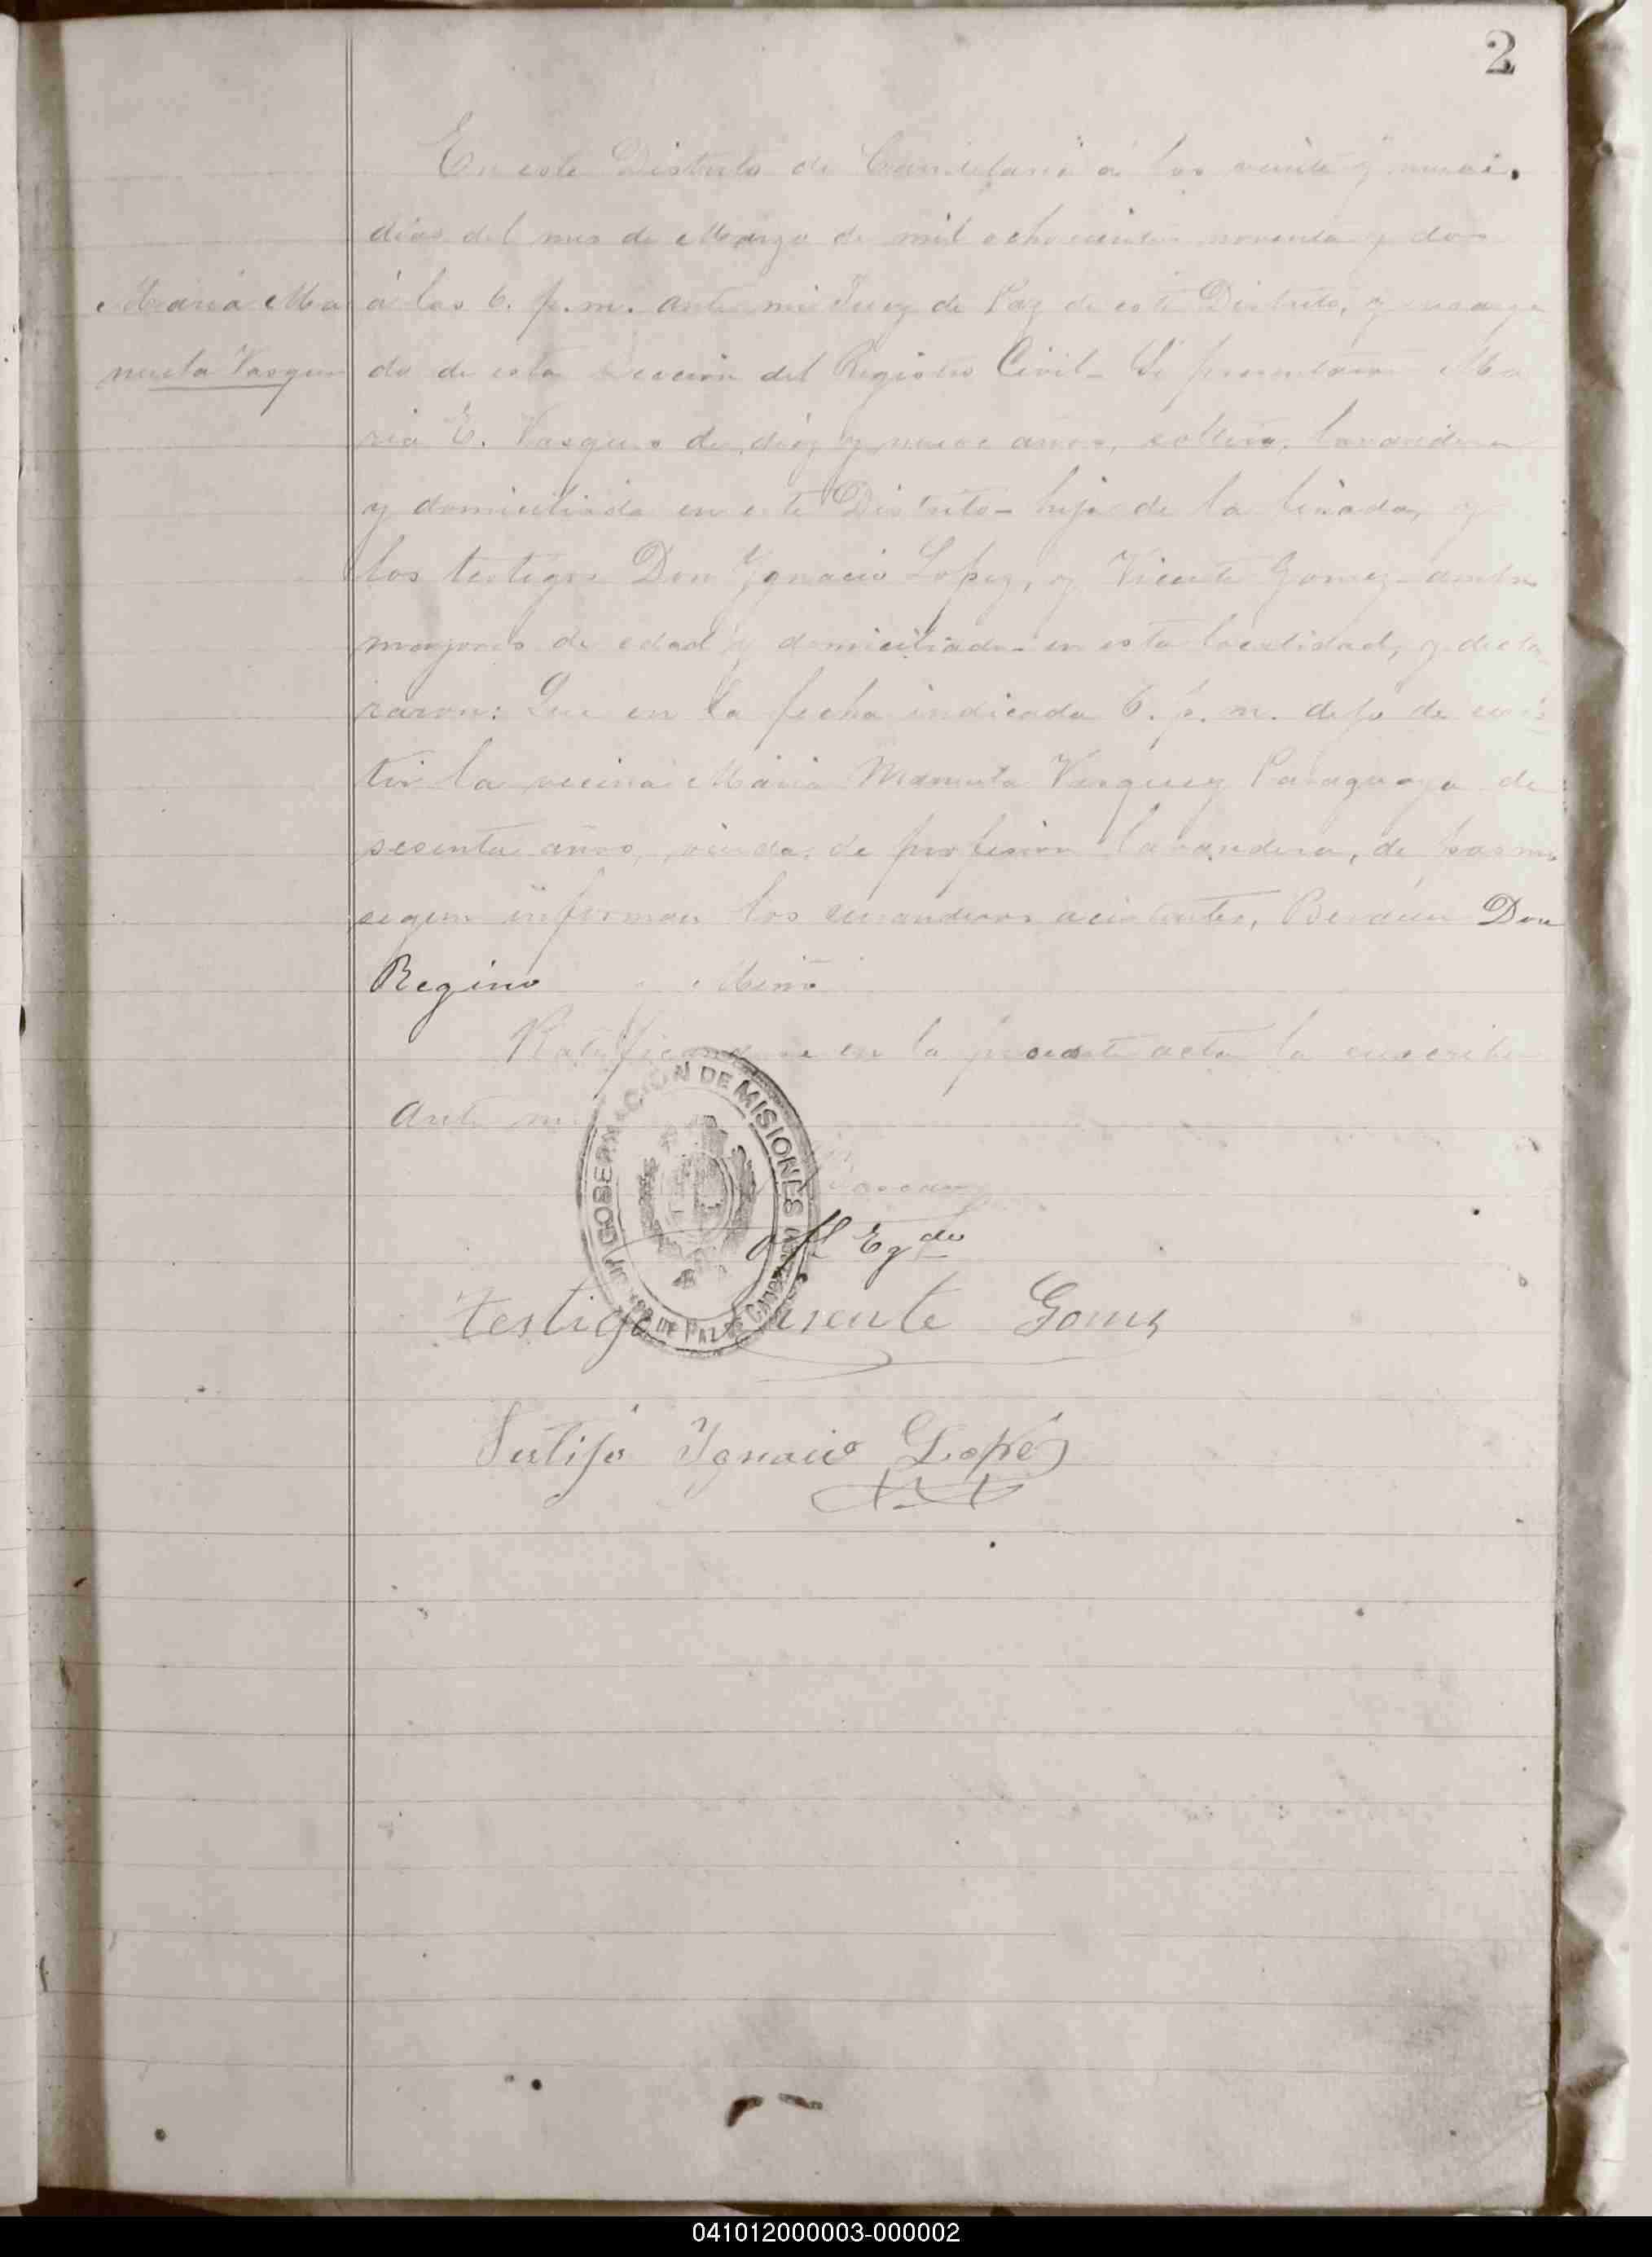 2
En este Distrito de Candelaria á los veinte y nueve
dias del mes de Marzo de mil ochocientos noventa y dos
Maria Ma
á las 6. p.m. ante mi Juez de Paz de este Distrito, y encarga
nuela Vasquez
do de esta Seccion del Registro Civil - Se presentaron Ma
ria E. Vasques de diez y nueve años, soltera, lavandera
y domiciliada en este Distrito - hija de la finada, y
los testigos Don Ygnacio Lopez, y Vicente Gomez - ambos
mayores de edad y domiciliados en esta localidad, y decla
raron: Que en la fecha indicada 6. p. m. dejo de exis
tir la vecina Maria Manuela Vasquez Paraguaya de
sesenta años, viuda, de profesion lavandera, de pasmo
segun informan los curanderos acistentes, Don
Regino
Ratificandose en la presente acta la suscriben
Ante mi
GOBERNACION DE MISIONES
JUZGADO DE PAZ DE CANDELARIA
Off Egdo
Testigo Vicente Gomez
Testijo Ygnacio Lopez
041012000003-000002